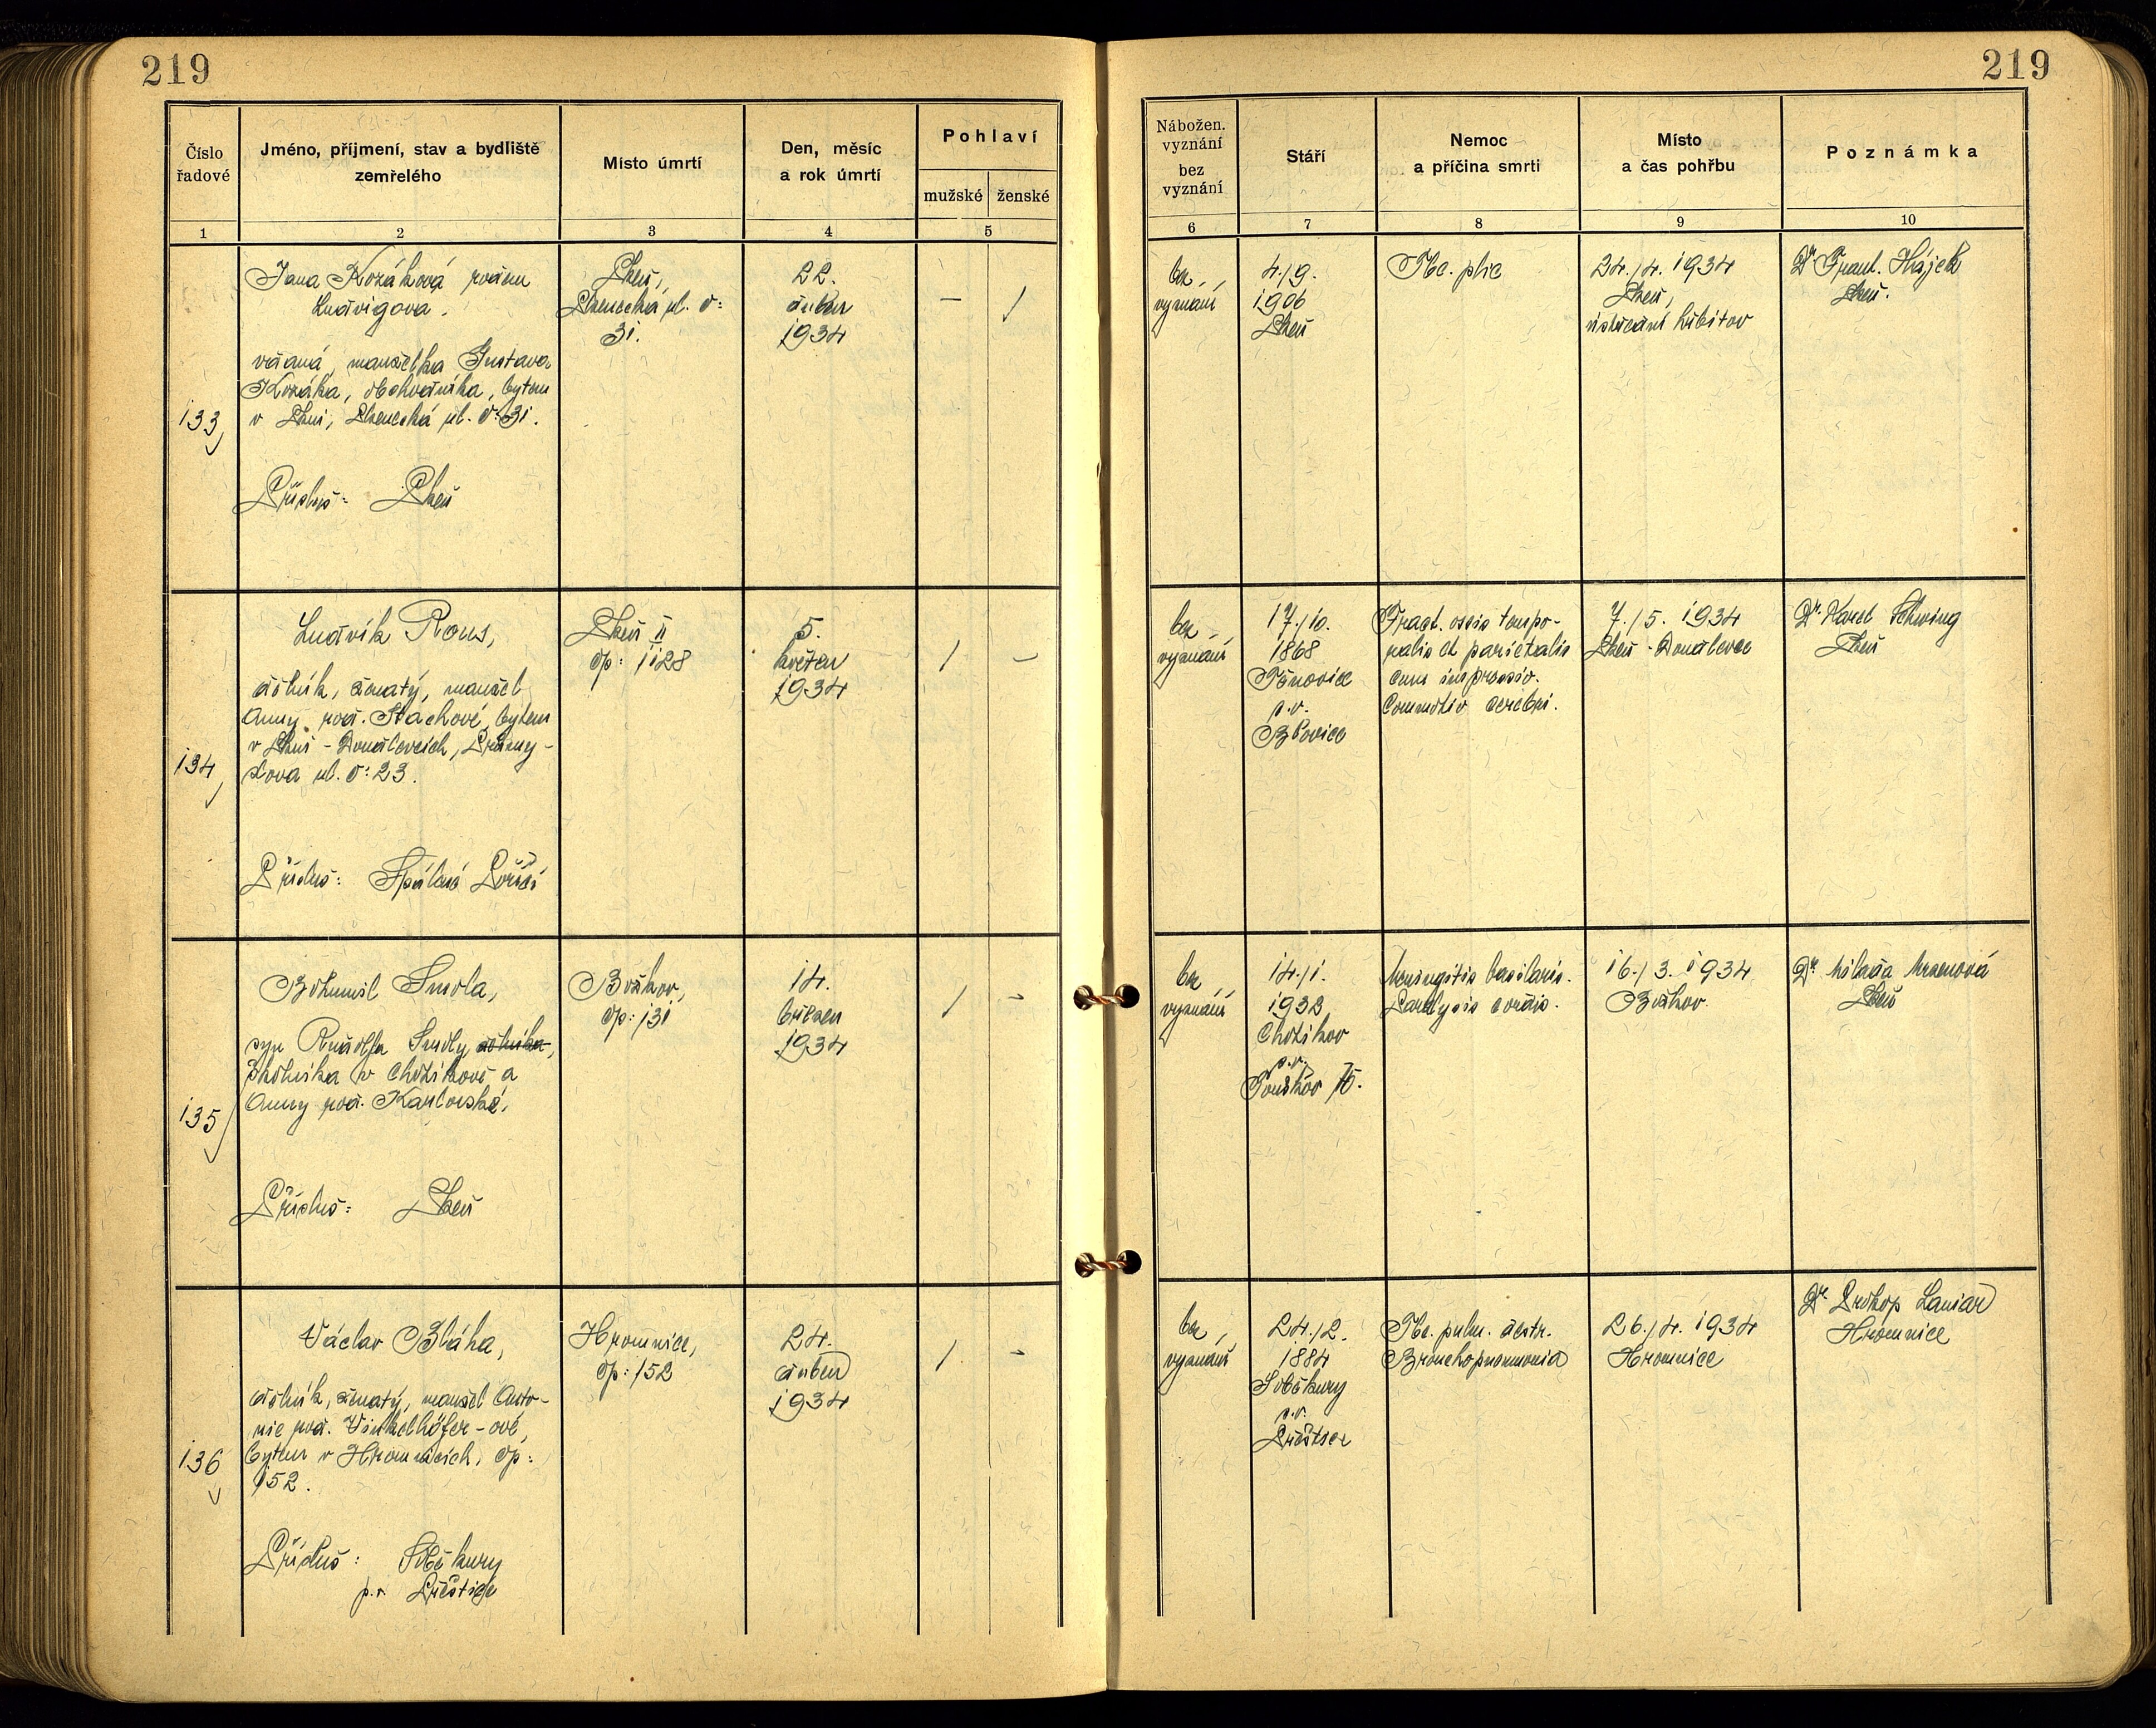 219
219
Číslo
řadové
Jméno, příjmení, stav a bydliště
zemřelého
Místo úmrtí
Den, měsíc
a rok úmrtí
Pohlaví
mužské
ženské
Nábožen.
vyznání
bez
vyznání
Stáří
Nemoc
a příčina smrti
Místo
a čas pohřbu
Poznámka
1
2
3
4
5
6
7
8
9
10
133
Jana Kozáková rozen
Ludvigova.
vdaná, manželka Gustava
Kozáka, obchodníka, bytem
v Plzni, Plzenecká ul. č: 31.
Přísluš: Plzeň
Plzeň,
Plzenecká ul. č:
31.
22.
duben
1934
—
/
bez
vyznání
4./9.
1906
Plzeň
Tbc. plic
24./4. 1934
Plzeň,
ústřední hřbitov
Dr Frant. Hájek
Plzeň.
134
Ludvík Rous,
dělník, ženatý, manžel
Anny, roz. Stachové, bytem
v Plzni - Doudlevcích, Přemy-
slova ul. č: 23.
Přísluš: Spálené Poříčí
Plzeň II
čp: 1128
5.
květen
1934
/
–
bez
vyznání
17./10.
1868
p.v.
Blovice
Fract. ossis tempo-
ralis et parietalis
cum impressio.
Commotio cerebri.
7./5. 1934
Plzeň - Doudlevce
Dr. Karel Schwing
Plzeň
135
Bohumil Smola,
syn Rudolfa Smoly dělníka,
v Chotíkově a
Anny roz. Karlovské,
Přísluš: Plzeň
Božkov,
čp: 131
14.
březen
1934
/
–
bez
vyznání
14./1.
1932
Chotíkov
p.v.
Touškov
Meningitis basilaris.
Paralysis cordis.
16./3. 1934
Božkov.
Dr. Milada Mrazenová
Plzeň
136
Václav Bláha,
dělník, ženatý, manžel Anto-
nie roz. Winkelhöfer-ové,
bytem v Hromnicích, čp:
152.
Přísluš: Soběkury
p.v. Přeštice
Hromnice,
čp: 152
24.
duben
1934
/
–
bez
vyznání
24./2.
1884
Soběkury
p.v.
Přeštice
Tbc. pulm. destr.
Bronchopneumonia
26./4. 1934
Hromnice
Dr. Prokop Laniar
Hromnice